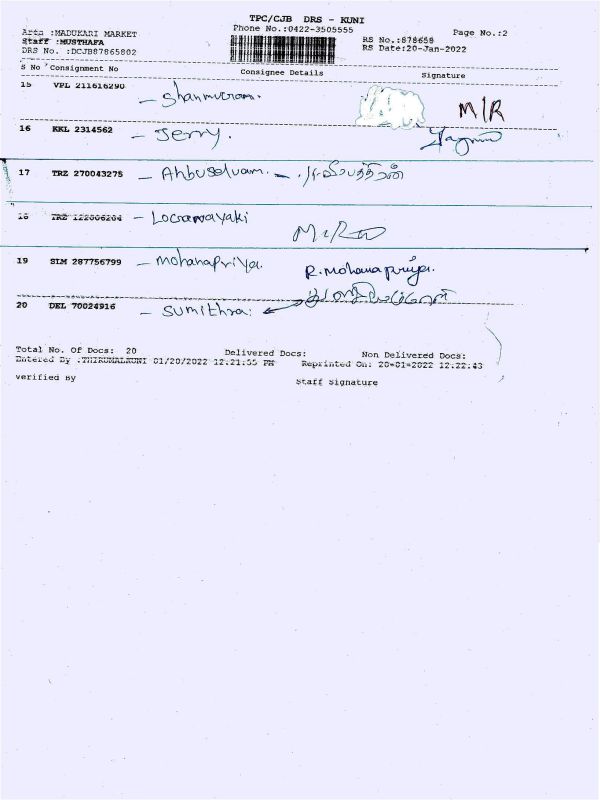 TPC/CJB DRS - KUNI
Phone No.:0422-3505555
Page No.:2
:MADUKARI MARKET
Staff :MUSTHAFA
DRS No. :DCJB87865802
RS No.:878658
RS Date:20-Jan-2022
S No Consignment No Consignee Details Signature
15 VPL 211616290 - Shanmugam. M/R
16 KKL 2314562 - Jerry.
17 TRZ 270043275 - Ahbuselvam. -
18 TRZ 122006204 -
19 SLM 287756799 - mohanapriya. R.mohanapriya.
20 DEL 70024916 - sumithra
Total No. Of Docs: 20 Delivered Docs: Non Delivered Docs:
Entered By :THIRUMALKUNI 01/20/2022 12:21:55 PM Reprinted On: 20-01-2022 12:22:43
verified By Staff Signature